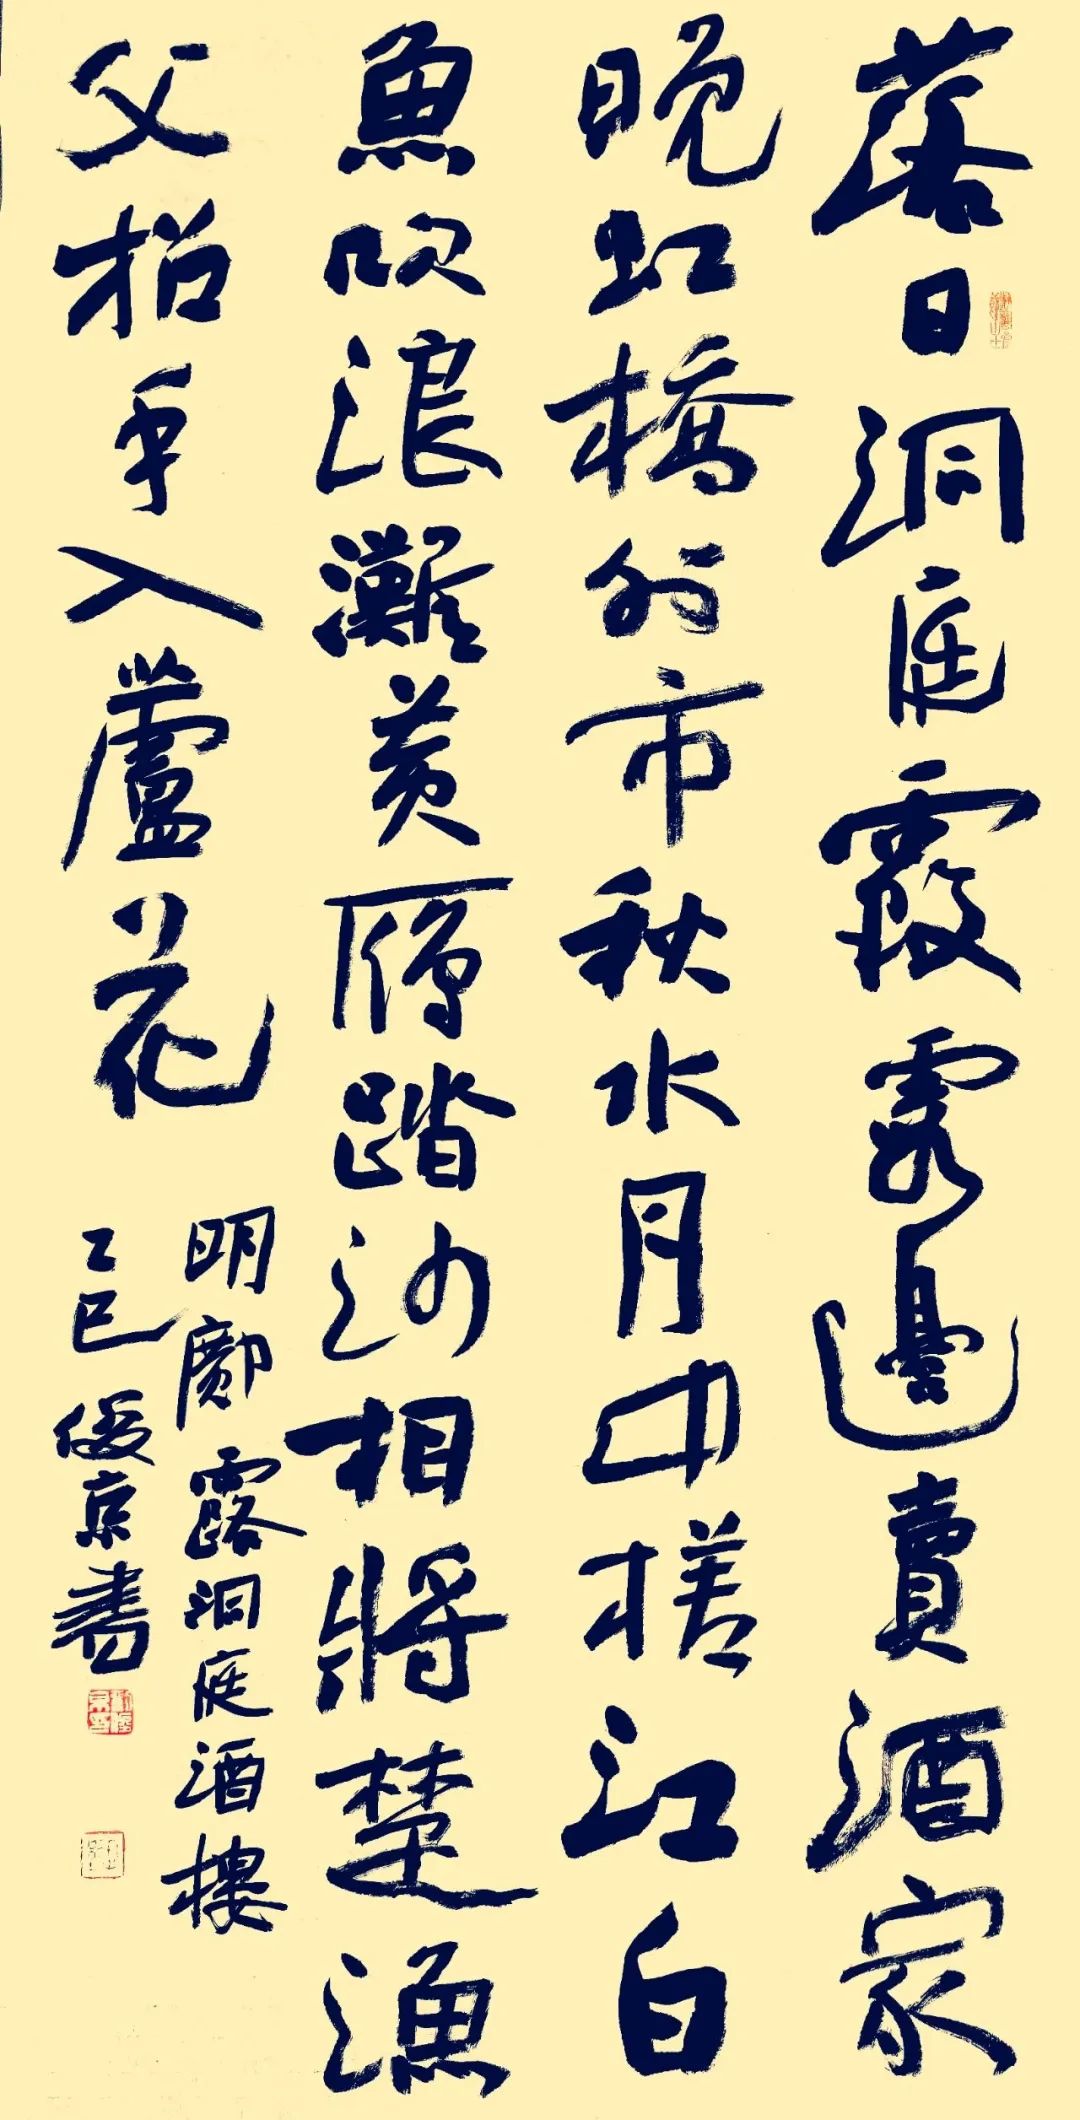 落日洞庭霞霞邊賣酒家
晚虹橋外市秋水月中槎江白
魚吹浪灘黃鴈踏沙相將楚漁
父招手入蘆花
明鄺露洞庭酒樓
乙巳俊京書